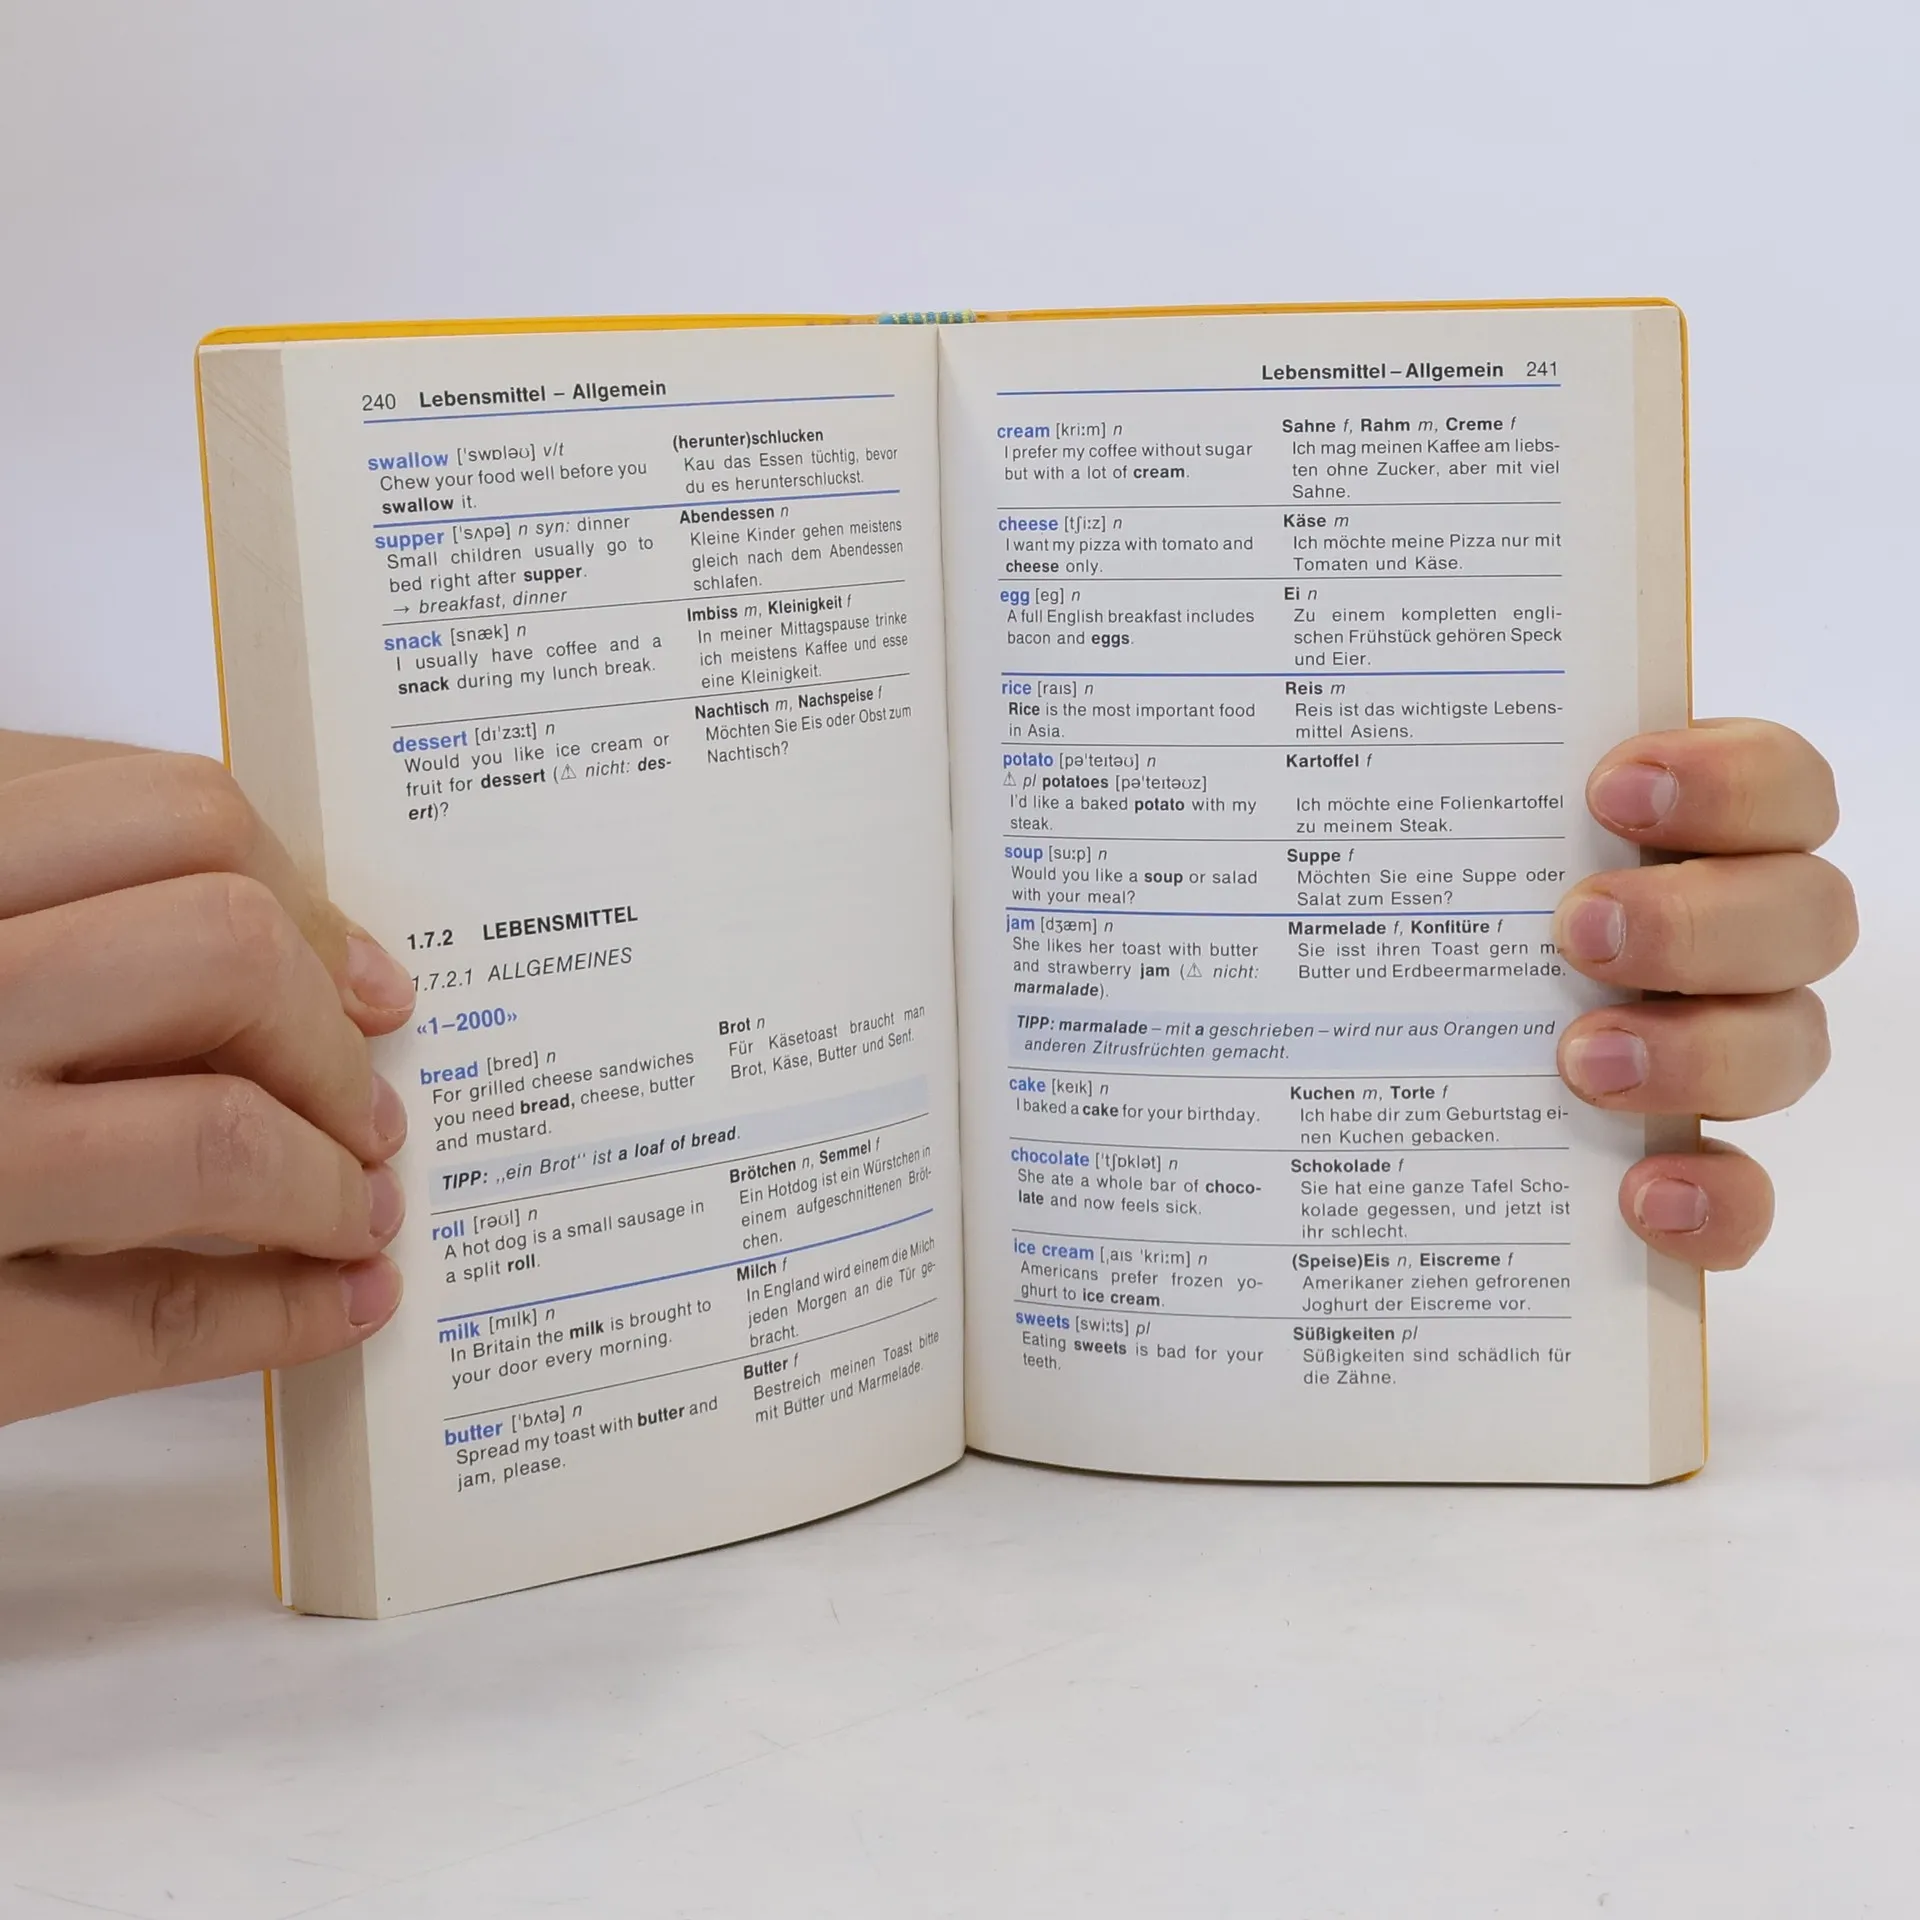 240 Lebensmittel – Allgemein
swallow ['swɒləʊ] v/t
Chew your food well before you
swallow it.
(herunter)schlucken
Kau das Essen tüchtig, bevor
du es herunterschluckst.
supper ['sʌpə] n syn: dinner
Small children usually go to
bed right after supper.
→ breakfast, dinner
Abendessen n
Kleine Kinder gehen meistens
gleich nach dem Abendessen
schlafen.
snack [snæk] n
I usually have coffee and a
snack during my lunch break.
Imbiss m, Kleinigkeit f
In meiner Mittagspause trinke
ich meistens Kaffee und esse
eine Kleinigkeit.
dessert [dɪ'zɜːt] n
Would you like ice cream or
fruit for dessert (⚠ nicht: des-
ert)?
Nachtisch m, Nachspeise f
Möchten Sie Eis oder Obst zum
Nachtisch?
1.7.2 LEBENSMITTEL
1.7.2.1 ALLGEMEINES
«1–2000»
bread [bred] n
For grilled cheese sandwiches
you need bread, cheese, butter
and mustard.
Brot n
Für Käsetoast braucht man
Brot, Käse, Butter und Senf.
TIPP: „ein Brot“ ist a loaf of bread.
roll [rəʊl] n
A hot dog is a small sausage in
a split roll.
Brötchen n, Semmel f
Ein Hotdog ist ein Würstchen in
einem aufgeschnittenen Bröt-
chen.
milk [mɪlk] n
In Britain the milk is brought to
your door every morning.
Milch f
In England wird einem die Milch
jeden Morgen an die Tür ge-
bracht.
butter ['bʌtə] n
Spread my toast with butter and
jam, please.
Butter f
Bestreich meinen Toast bitte
mit Butter und Marmelade.
Lebensmittel – Allgemein 241
cream [kriːm] n
I prefer my coffee without sugar
but with a lot of cream.
Sahne f, Rahm m, Creme f
Ich mag meinen Kaffee am liebs-
ten ohne Zucker, aber mit viel
Sahne.
cheese [tʃiːz] n
I want my pizza with tomato and
cheese only.
Käse m
Ich möchte meine Pizza nur mit
Tomaten und Käse.
egg [eg] n
A full English breakfast includes
bacon and eggs.
Ei n
Zu einem kompletten engli-
schen Frühstück gehören Speck
und Eier.
rice [raɪs] n
Rice is the most important food
in Asia.
Reis m
Reis ist das wichtigste Lebens-
mittel Asiens.
potato [pə'teɪtəʊ] n
⚠ pl potatoes [pə'teɪtəʊz]
I'd like a baked potato with my
steak.
Kartoffel f
Ich möchte eine Folienkartoffel
zu meinem Steak.
soup [suːp] n
Would you like a soup or salad
with your meal?
Suppe f
Möchten Sie eine Suppe oder
Salat zum Essen?
jam [dʒæm] n
She likes her toast with butter
and strawberry jam (⚠ nicht:
marmalade).
Marmelade f, Konfitüre f
Sie isst ihren Toast gern
Butter und Erdbeermarmelade.
TIPP: marmalade – mit a geschrieben – wird nur aus Orangen und
anderen Zitrusfrüchten gemacht.
cake [keɪk] n
I baked a cake for your birthday.
Kuchen m, Torte f
Ich habe dir zum Geburtstag ei-
nen Kuchen gebacken.
chocolate ['tʃɒklət] n
She ate a whole bar of choco-
late and now feels sick.
Schokolade f
Sie hat eine ganze Tafel Scho-
kolade gegessen, und jetzt ist
ihr schlecht.
ice cream [ˌaɪs 'kriːm] n
Americans prefer frozen yo-
ghurt to ice cream.
(Speise)Eis n, Eiscreme f
Amerikaner ziehen gefrorenen
Joghurt der Eiscreme vor.
sweets [swiːts] pl
Eating sweets is bad for your
teeth.
Süßigkeiten pl
Süßigkeiten sind schädlich für
die Zähne.